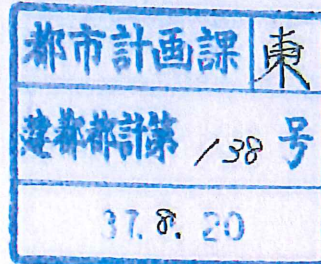 都市計画課 東
建都都計第138号
37.8.20